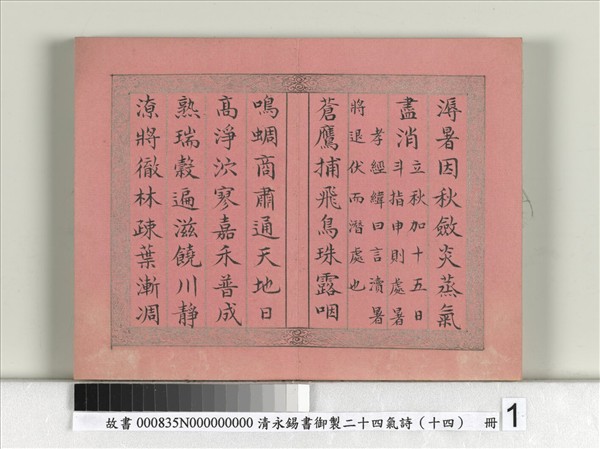 溽暑因秋斂炎蒸氣
盡消
立秋加十五日
斗指申則處暑
孝經緯曰言瀆暑
將退伏而潛處也
蒼鷹捕飛鳥珠露咽
鳴蜩商肅通天地日
高淨泬寥嘉禾普成
熟瑞穀遍滋饒川靜
涼將徹林疎葉漸凋
故書 000835N000000000 清永錫書御製二十四氣詩（十四） 冊 1